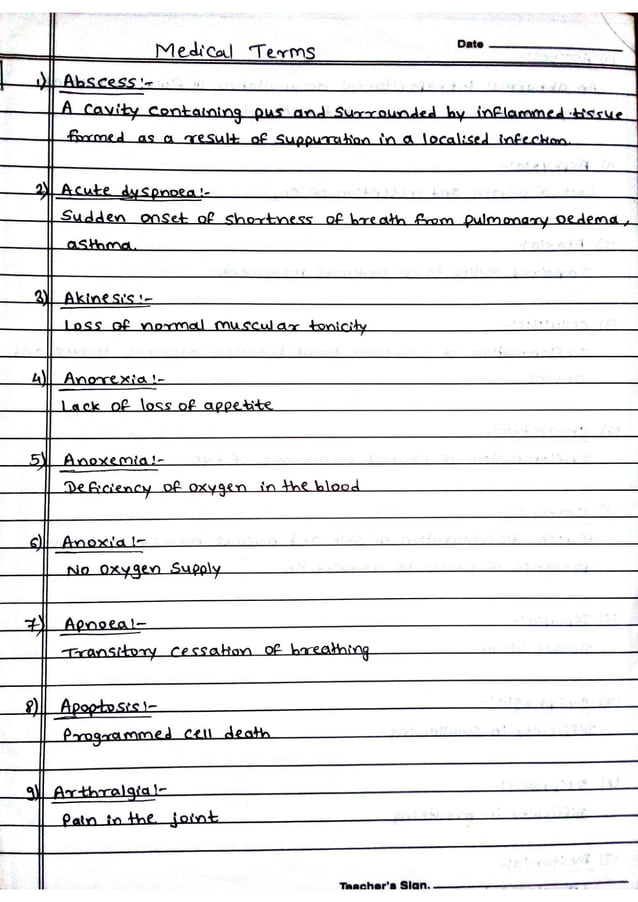 Medical Terms
Date
1) Abscess:-
A cavity containing pus and surrounded by inflammed tissue
formed as a result of suppuration in a localised infection.
2) Acute dyspnoea:-
Sudden onset of shortness of breath from pulmonary oedema,
asthma.
3) Akinesis:-
Loss of normal muscular tonicity
4) Anorexia:-
Lack of loss of appetite
5) Anoxemia:-
Deficiency of oxygen in the blood
6) Anoxia:-
No oxygen supply
7) Apnoea:-
Transitory cessation of breathing
8) Apoptosis:-
Programmed cell death
9) Arthralgia:-
Pain in the joint
Teacher's Sign.